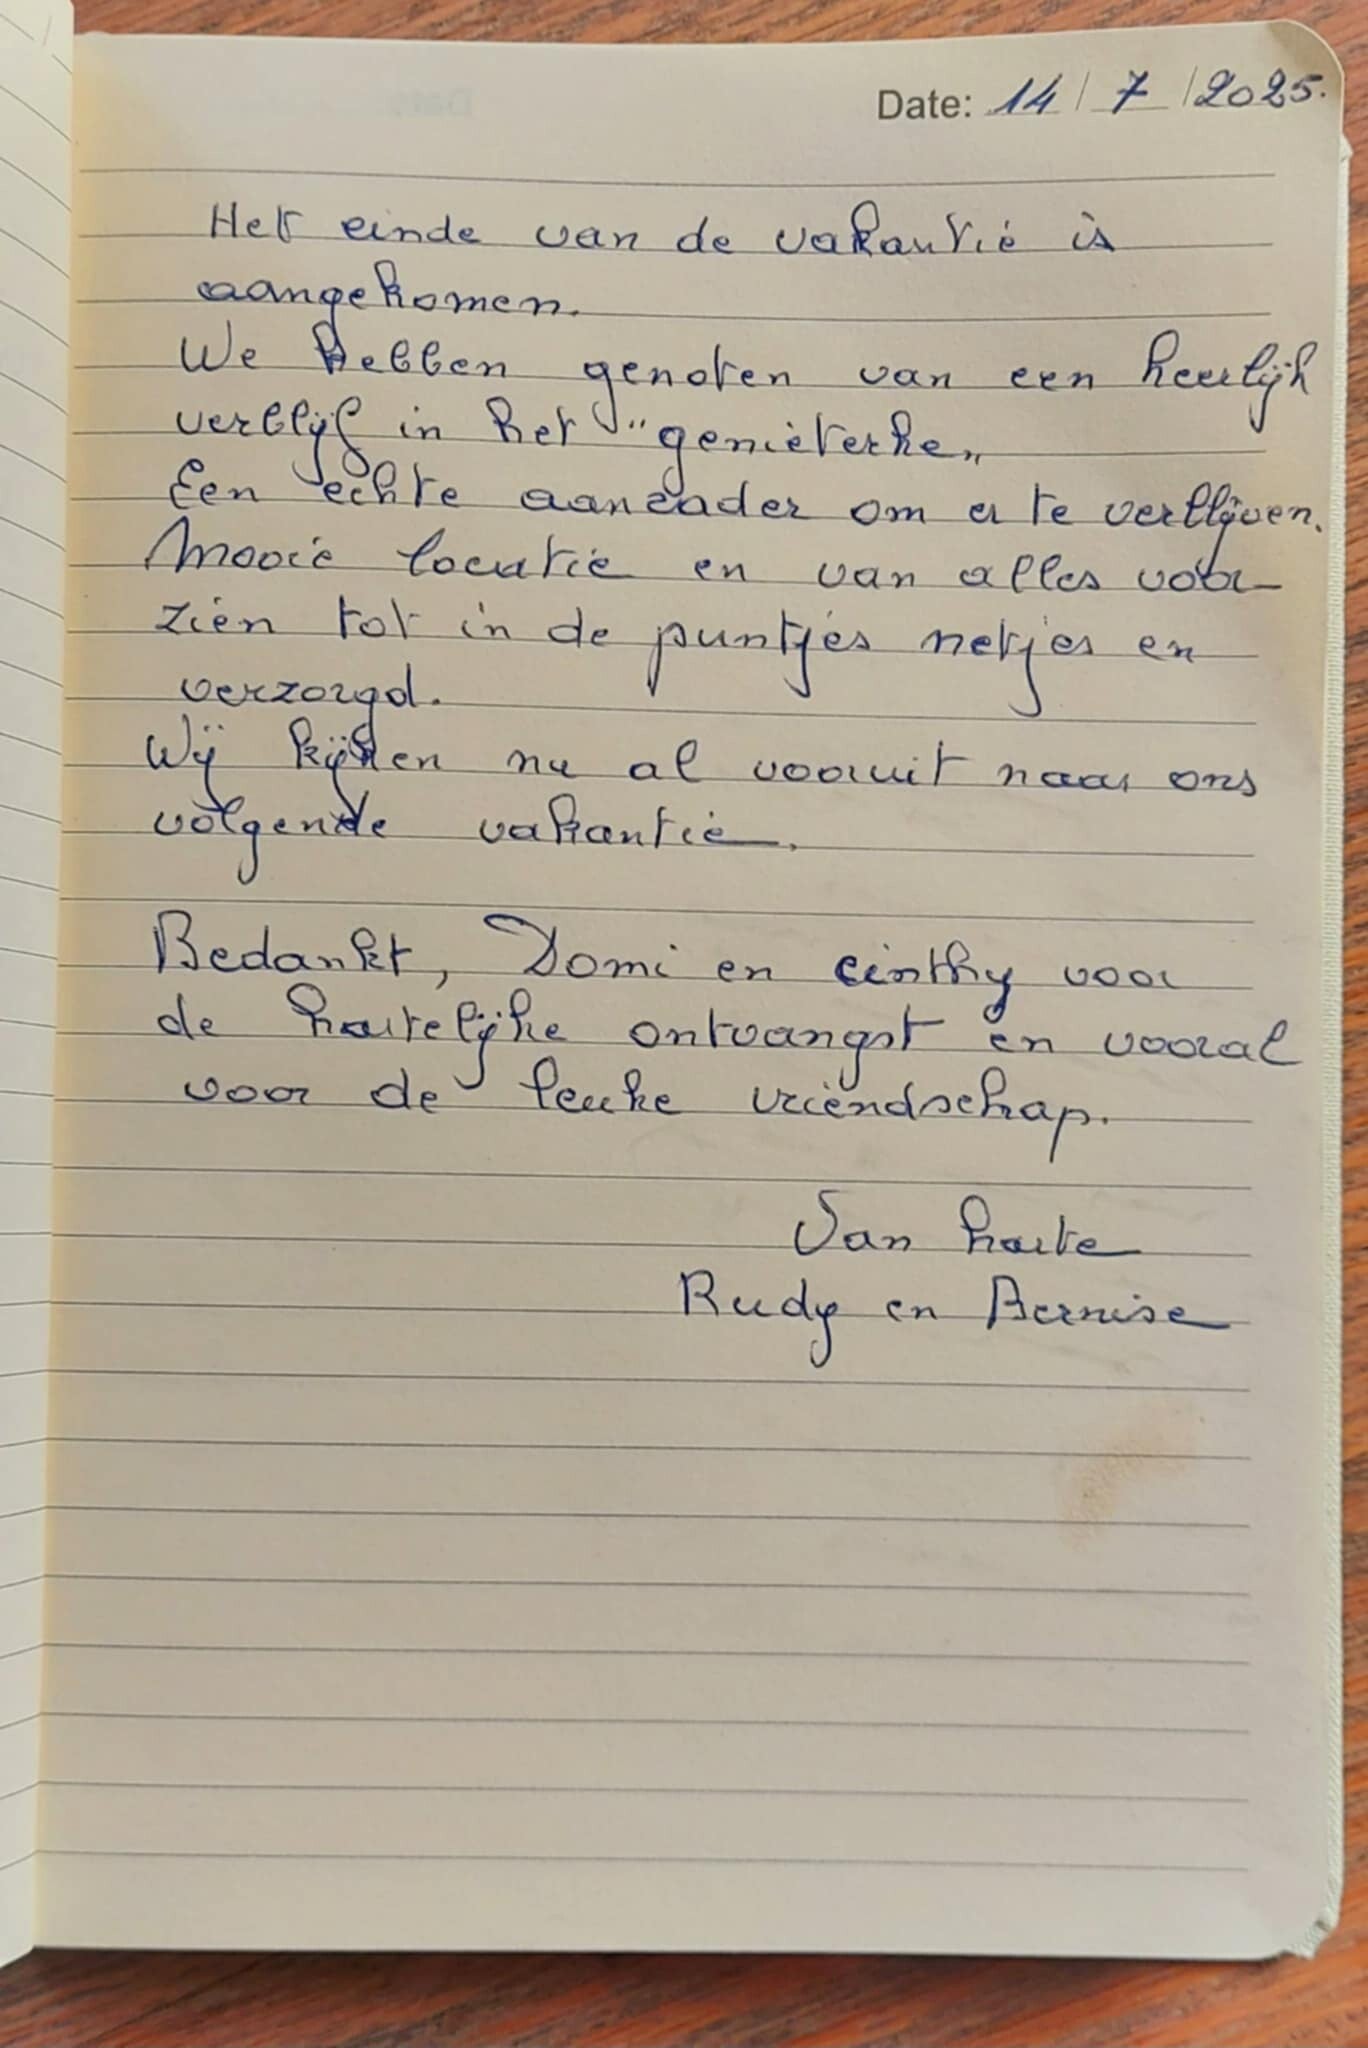 Date: 14 / 7 / 2025.
Het einde van de vakantie is
aangekomen.
We hebben genoten van een heerlijk
verblijf in het "genieterke„
Een echte aanrader om er te verblijven.
Mooie locatie en van alles voor-
zien tot in de puntjes netjes en
verzorgd.
Wij kijken nu al vooruit naar ons
volgende vakantie.
Bedankt, Domi en Cinthy voor
de hartelijke ontvangst en vooral
voor de leuke vriendschap.
Van harte
Rudy en Bernise